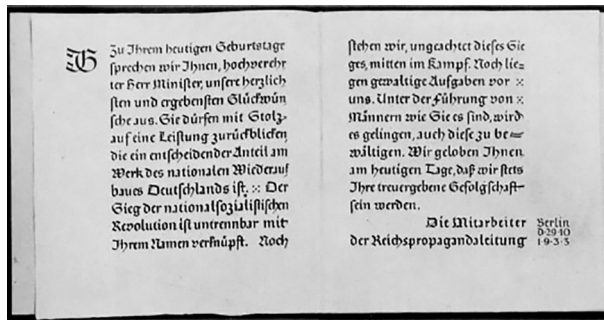 Zu Ihrem heutigen Geburtstage
sprechen wir Ihnen, hochverehr
ter Herr Minister, unsere herzlich
sten und ergebensten Glückwün
sche aus. Sie dürfen mit Stolz-
auf eine Leistung zurückblicken
die ein entscheidender Anteil am
Werk des nationalen Wiederauf
baues Deutschlands ist. Der
Sieg der nationalsozialistischen
Revolution ist untrennbar mit
Ihrem Namen verknüpft. Noch
stehen wir, ungeachtet dieses Sie
ges, mitten im Kampf. Noch lie=
gen gewaltige Aufgaben vor
uns. Unter der Führung von
Männern wie Sie es sind, wird
es gelingen, auch diese zu be=
wältigen. Wir geloben Ihnen
am heutigen Tage, daß wir stets
Ihre treuergebene Gefolgschaft-
sein werden.
Die Mitarbeiter
der Reichspropagandaleitung
Berlin
d·29·10
1·9·3·3